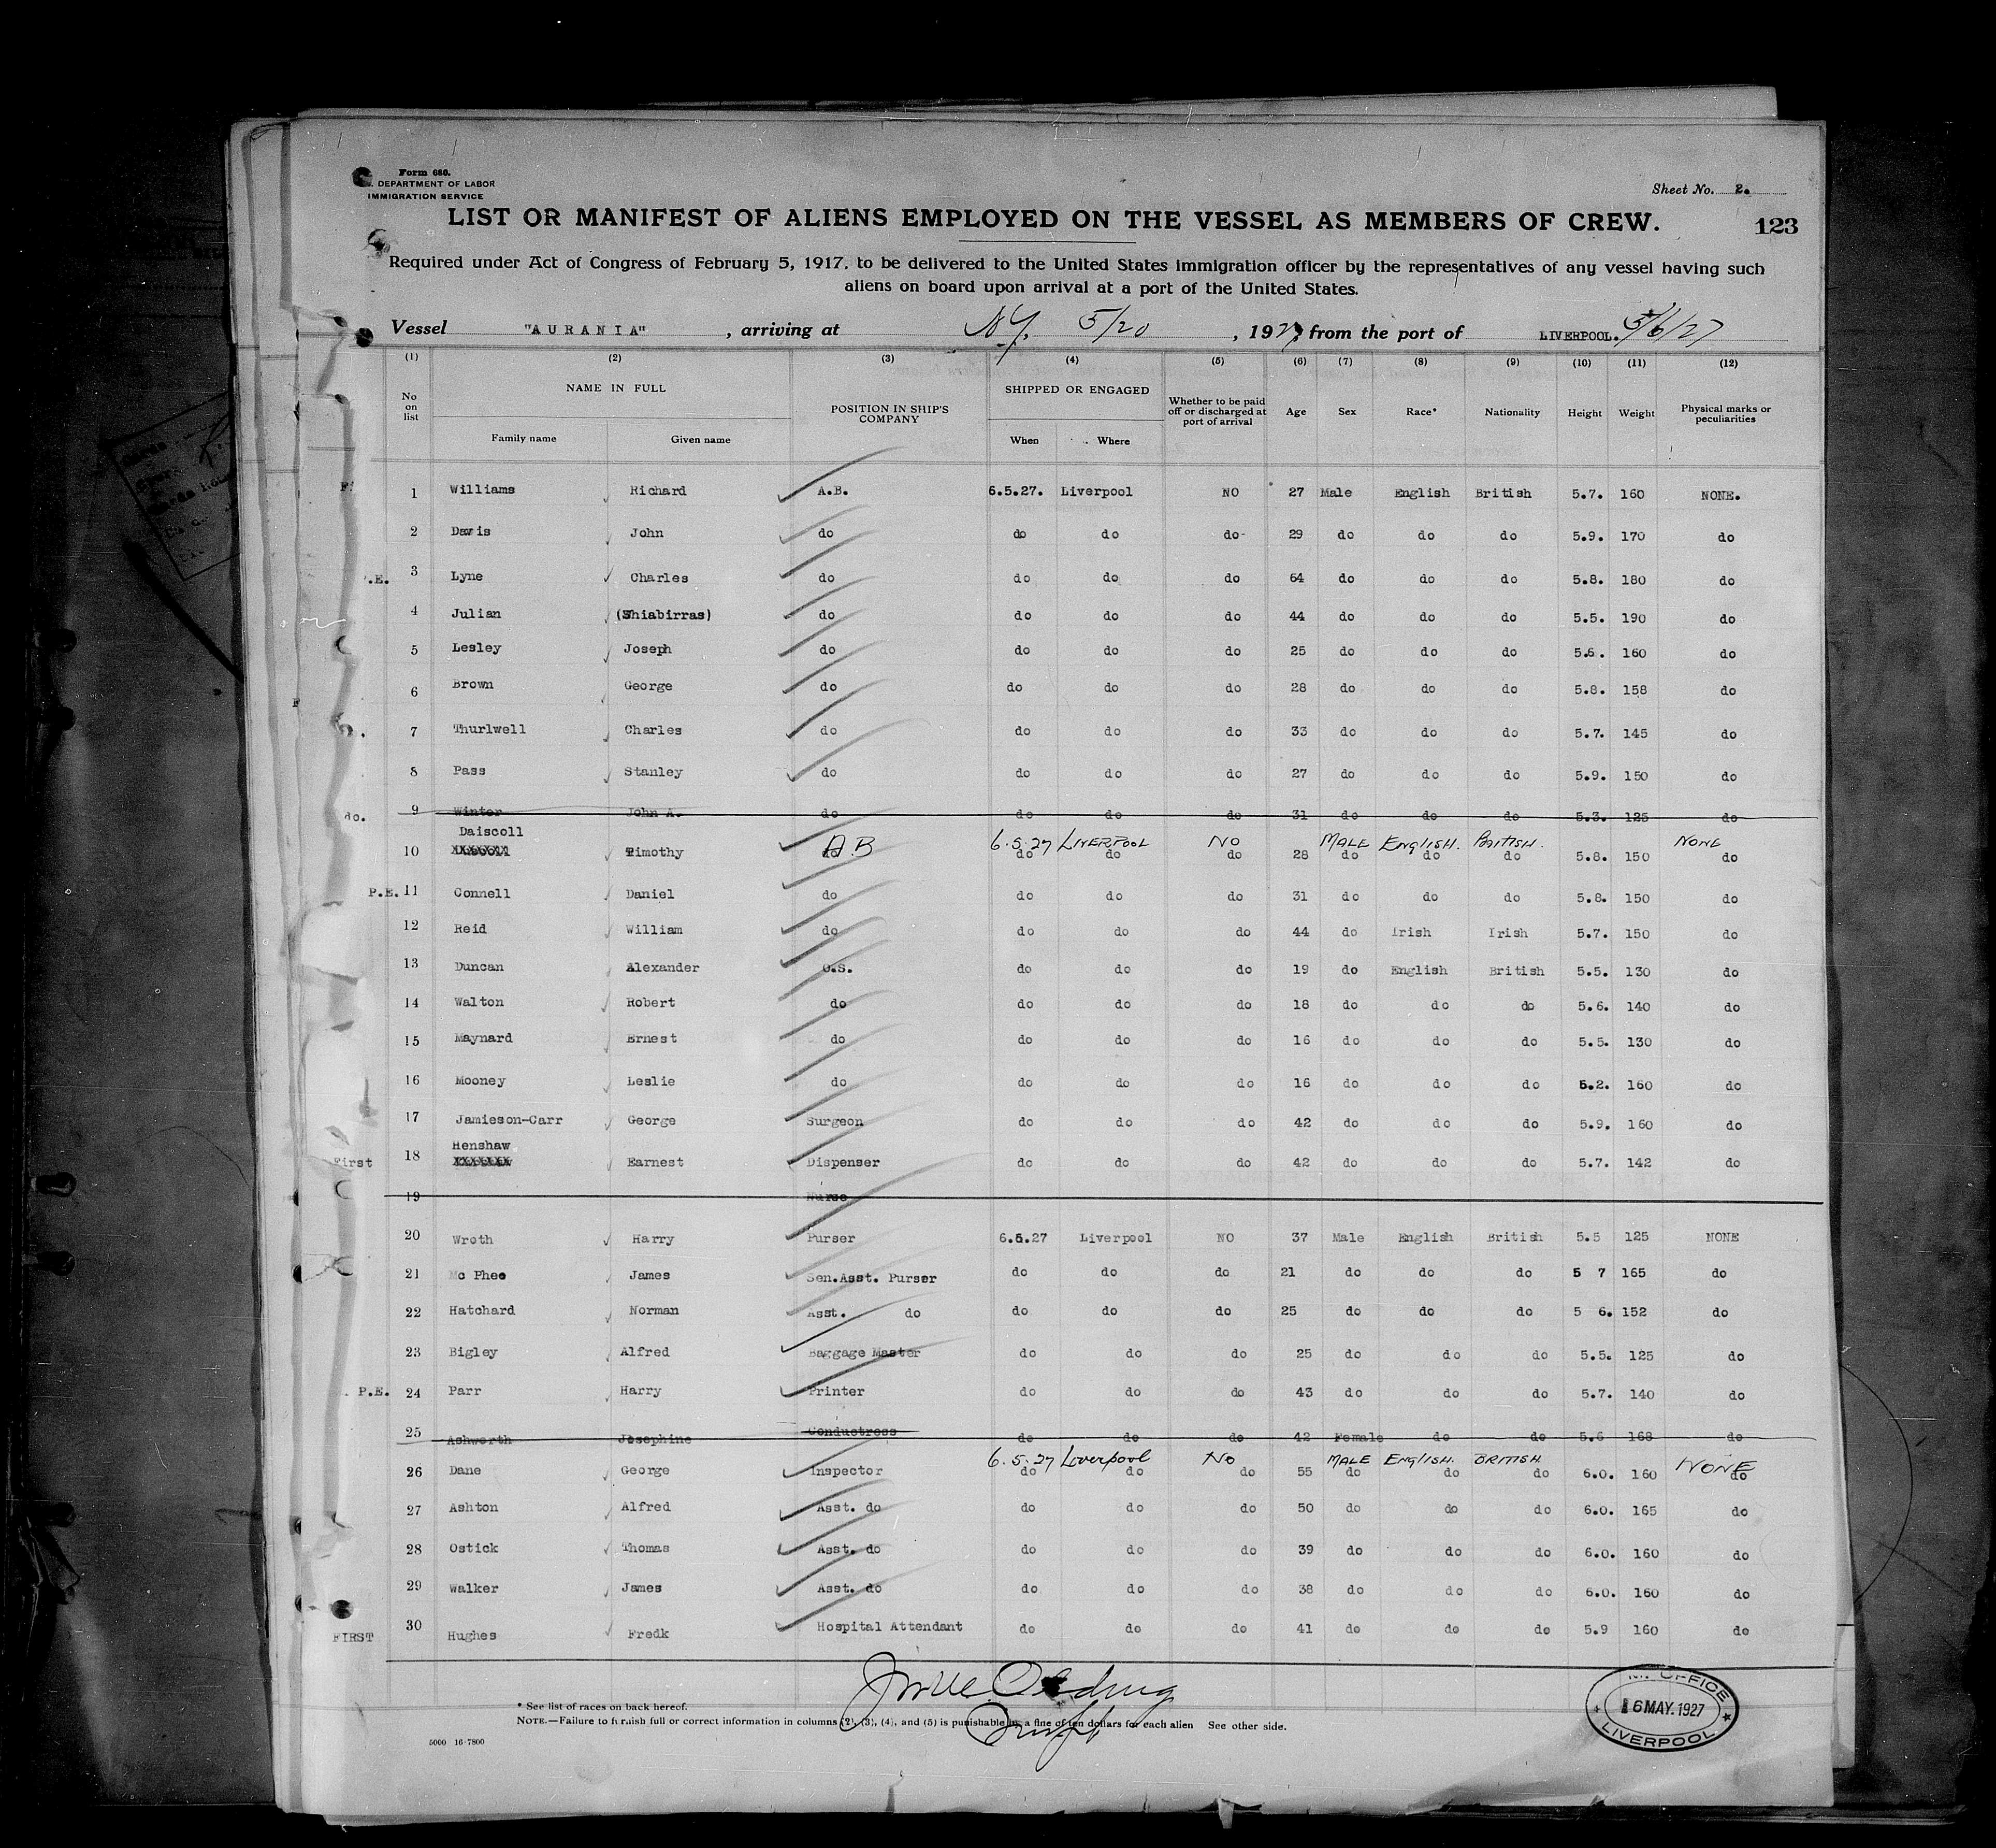 Form 680.
DEPARTMENT OF LABOR
IMMIGRATION SERVICE
Sheet No. 2.
LIST OR MANIFEST OF ALIENS EMPLOYED ON THE VESSEL AS MEMBERS OF CREW.
123
Required under Act of Congress of February 5, 1917, to be delivered to the United States immigration officer by the representatives of any vessel having such
aliens on board upon arrival at a port of the United States.
Vessel "AURANIA", arriving at N.Y. 5/20, 1927, from the port of LIVERPOOL. 5/6/27
(1) (2) (3) (4) (5) (6) (7) (8) (9) (10) (11) (12)
No on list NAME IN FULL Family name Given name POSITION IN SHIP'S COMPANY SHIPPED OR ENGAGED When Where Whether to be paid off or discharged at port of arrival Age Sex Race* Nationality Height Weight Physical marks or peculiarities
1 Williams Richard A.B. 6.5.27. Liverpool NO 27 Male English British 5.7. 160 NONE.
2 Davis John do do do do- 29 do do do 5.9. 170 do
P.E. 3 Lyne Charles do do do do 64 do do do 5.8. 180 do
4 Julian (Shiabirras) do do do do 44 do do do 5.5. 190 do
5 Lesley Joseph do do do do 25 do do do 5.6. 160 do
6 Brown George do do do do 28 do do do 5.8. 158 do
7 Thurlwell Charles do do do do 33 do do do 5.7. 145 do
8 Pass Stanley do do do do 27 do do do 5.9. 150 do
do. 9 Winter John A. do do do do 31 do do do 5.3. 125 do
Daiscoll A.B 6.5.27 LIVERPOOL NO MALE ENGLISH. BRITISH. NONE
10 Timothy do do do do 28 do do do 5.8. 150 do
P.E. 11 Connell Daniel do do do do 31 do do do 5.8. 150 do
12 Reid William do do do do 44 do Irish Irish 5.7. 150 do
13 Duncan Alexander O.S. do do do 19 do English British 5.5. 130 do
14 Walton Robert do do do do 18 do do do 5.6. 140 do
15 Maynard Ernest do do do do 16 do do do 5.5. 130 do
16 Mooney Leslie do do do do 16 do do do 5.2. 160 do
17 Jamieson-Carr George Surgeon do do do 42 do do do 5.9. 160 do
Henshaw
First 18 XXXXXXX Earnest Dispenser do do do 42 do do do 5.7. 142 do
19 Nurse
20 Wroth Harry Purser 6.5.27 Liverpool NO 37 Male English British 5.5 125 NONE
21 Mc Phee James Sen.Asst. Purser do do do 21 do do do 5 7 165 do
22 Hatchard Norman Asst. do do do do 25 do do do 5 6. 152 do
23 Bigley Alfred Baggage Master do do do 25 do do do 5.5. 125 do
P.E. 24 Parr Harry Printer do do do 43 do do do 5.7. 140 do
25 Ashworth Josephine Conductress do do do 42 Female do do 5.6 168 do
6.5.27 Liverpool No MALE ENGLISH. BRITISH NONE
26 Dane George Inspector do do do 55 do do do 6.0. 160 do
27 Ashton Alfred Asst. do do do do 50 do do do 6.0. 165 do
28 Ostick Thomas Asst. do do do do 39 do do do 6.0. 160 do
29 Walker James Asst. do do do do 38 do do do 6.0. 160 do
FIRST 30 Hughes Fredk Hospital Attendant do do do 41 do do do 5.9 160 do
* See list of races on back hereof.
NOTE.—Failure to furnish full or correct information in columns (2), (3), (4), and (5) is punishable by a fine of ten dollars for each alien See other side.
5000 16-7800
OFFICE
16 MAY. 1927
LIVERPOOL